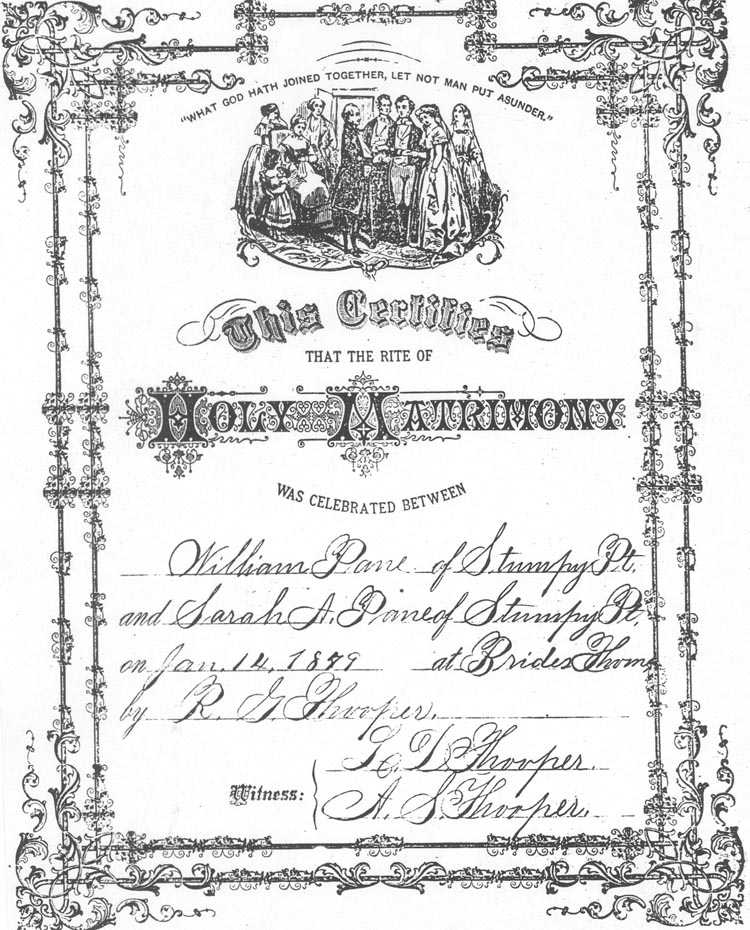 "WHAT GOD HATH JOINED TOGETHER, LET NOT MAN PUT ASUNDER."
This Certifies
THAT THE RITE OF
HOLY MATRIMONY
WAS CELEBRATED BETWEEN
William Pane of Stumpy Pt.
and Sarah A. Pane of Stumpy Pt.
on Jan. 14, 1879 at Brides Hom
by R. G. Hooper.
Hooper.
Witness:
A. S. Hooper.